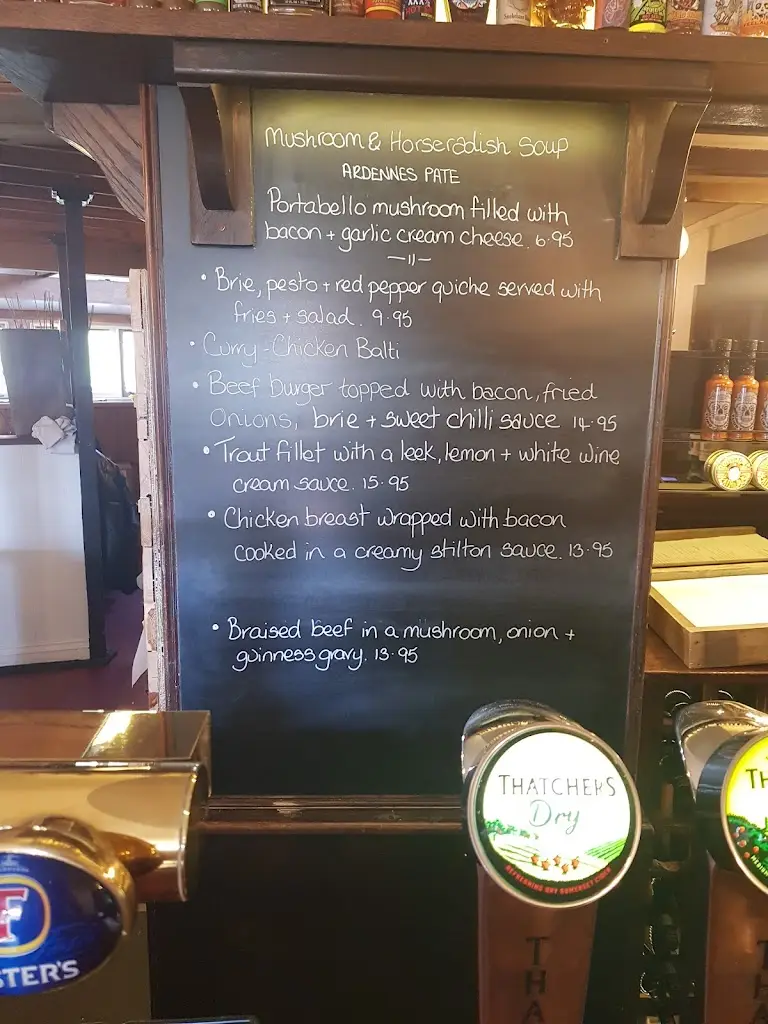 Mushroom & Horseradish Soup
ARDENNES PATE
Portabello mushroom filled with
bacon + garlic cream cheese. 6.95
—11—
• Brie, pesto + red pepper quiche served with
fries + salad. 9.95
• Curry - Chicken Balti
• Beef burger topped with bacon, fried
onions, brie + sweet chilli sauce 14.95
• Trout fillet with a leek, lemon + white wine
cream sauce. 15.95
• Chicken breast wrapped with bacon
cooked in a creamy stilton sauce. 13.95
• Braised beef in a mushroom, onion +
guinness gravy. 13.95
THATCHERS
Dry
REFRESHING DRY SOMERSET CIDER
THA
TH
F
STER'S